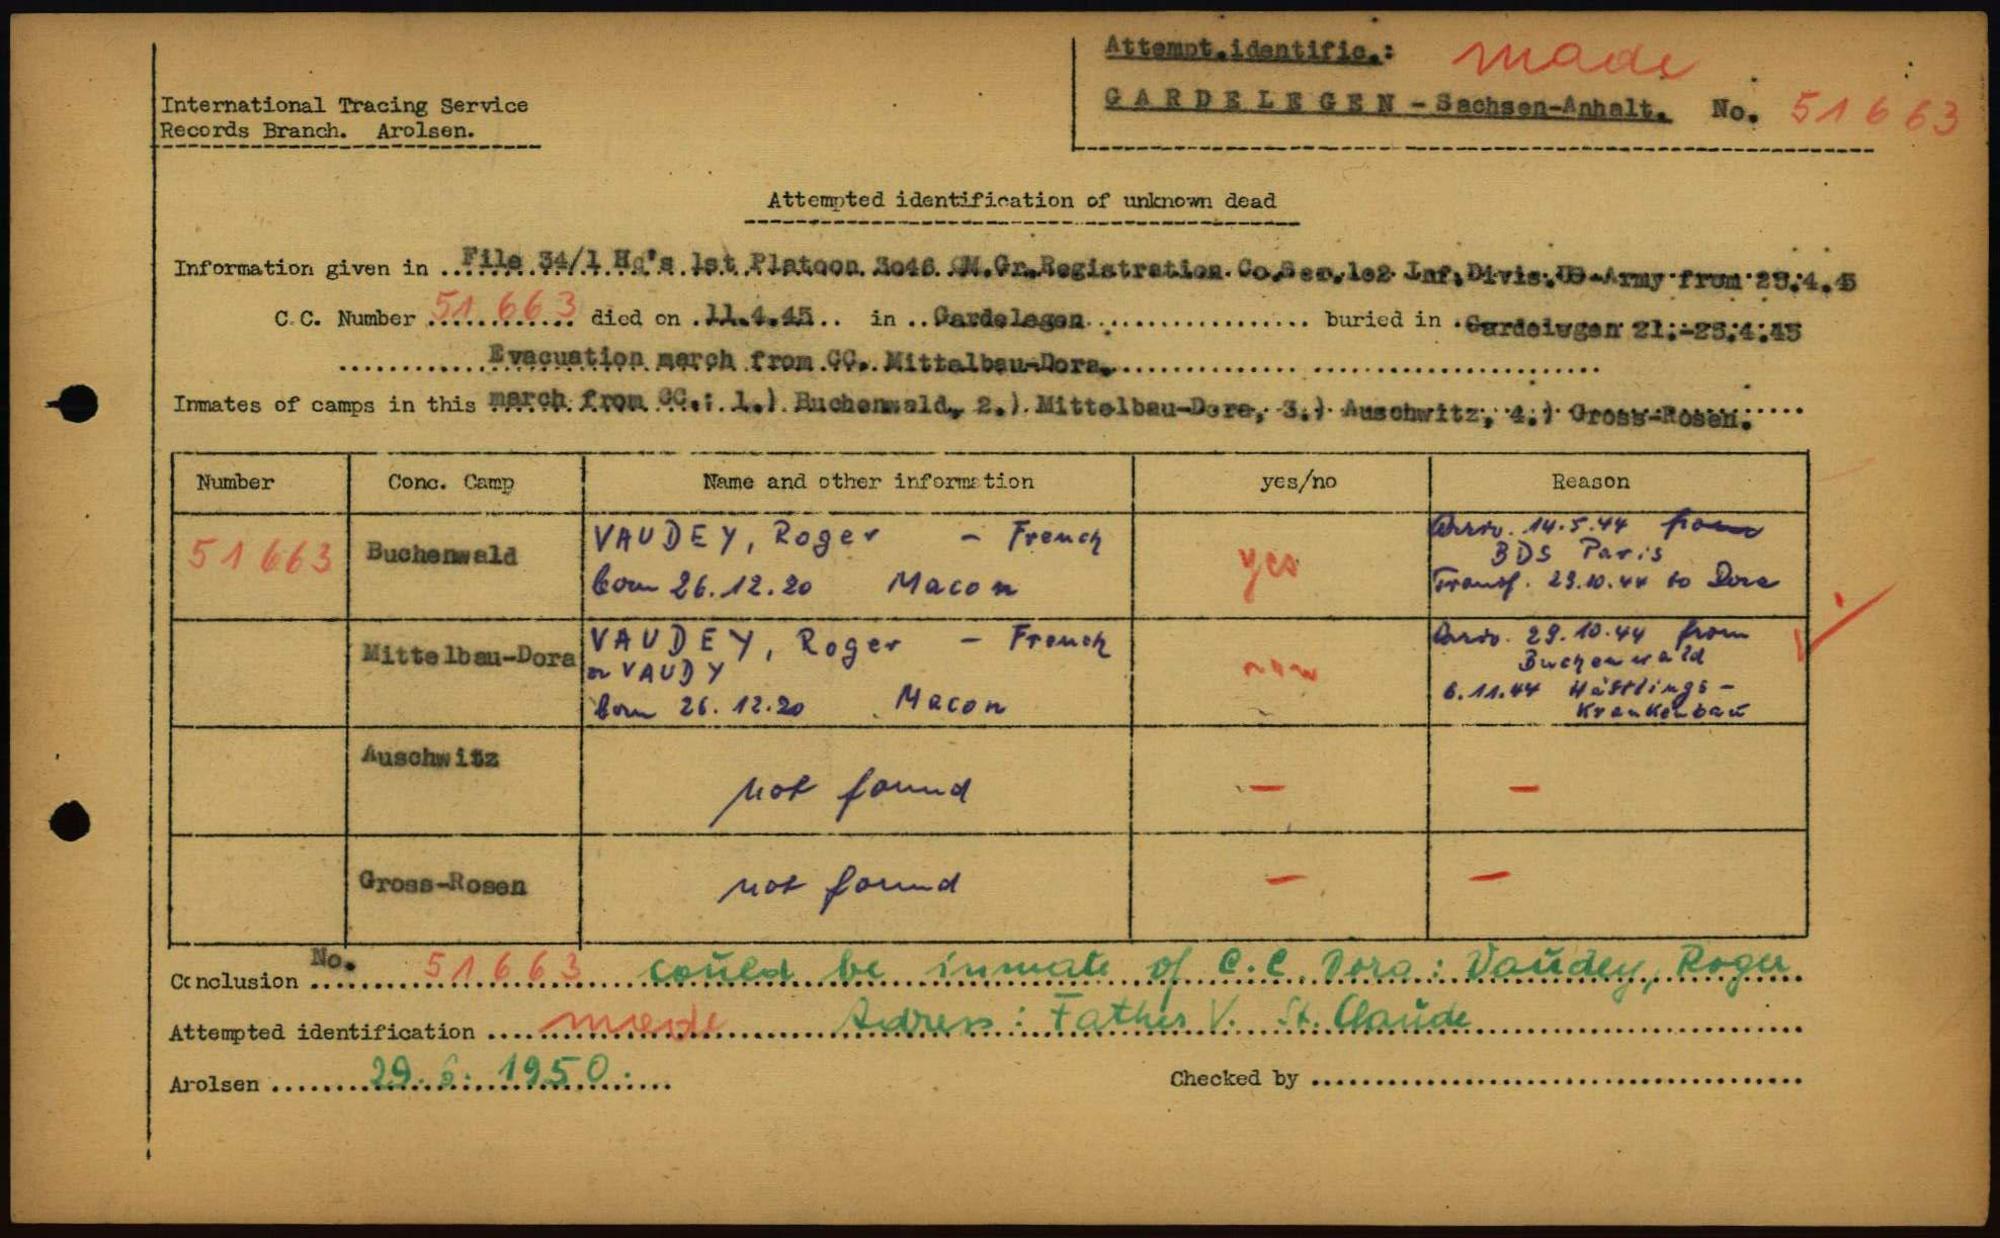 Attempt.identific.: made
International Tracing Service
Records Branch. Arolsen.
GARDELEGEN - Sachsen-Anhalt. No. 51663
Attempted identification of unknown dead
Information given in File 34/1 Hq's 1st Platoon 3046 QM.Gr.Registration Co.Ser.102 Inf.Divis.US-Army from 25.4.45
C.C. Number 51663 died on 11.4.45 in Gardelegen buried in Gardelegen 21.-25.4.45
Evacuation march from CC. Mittelbau-Dora.
Inmates of camps in this march from CC.: 1.) Buchenwald, 2.) Mittelbau-Dora, 3.) Auschwitz, 4.) Gross-Rosen.
Number Conc. Camp Name and other information yes/no Reason
51663 Buchenwald VAUDEY, Roger - French yes Arriv. 14.5.44 from
BDS Paris
born 26.12.20 Macon Transf. 29.10.44 to Dora
Mittelbau-Dora VAUDEY, Roger - French Arriv. 29.10.44 from
or VAUDY Buchenwald
born 26.12.20 Macon 6.11.44 Häftlings-
Krankenbau
Auschwitz not found - -
Gross-Rosen not found - -
Conclusion No. 51663 could be inmate of C.C. Dora: Vaudey, Roger
Attempted identification made Adress: Father V. St. Claude
Arolsen 29.6.1950. Checked by